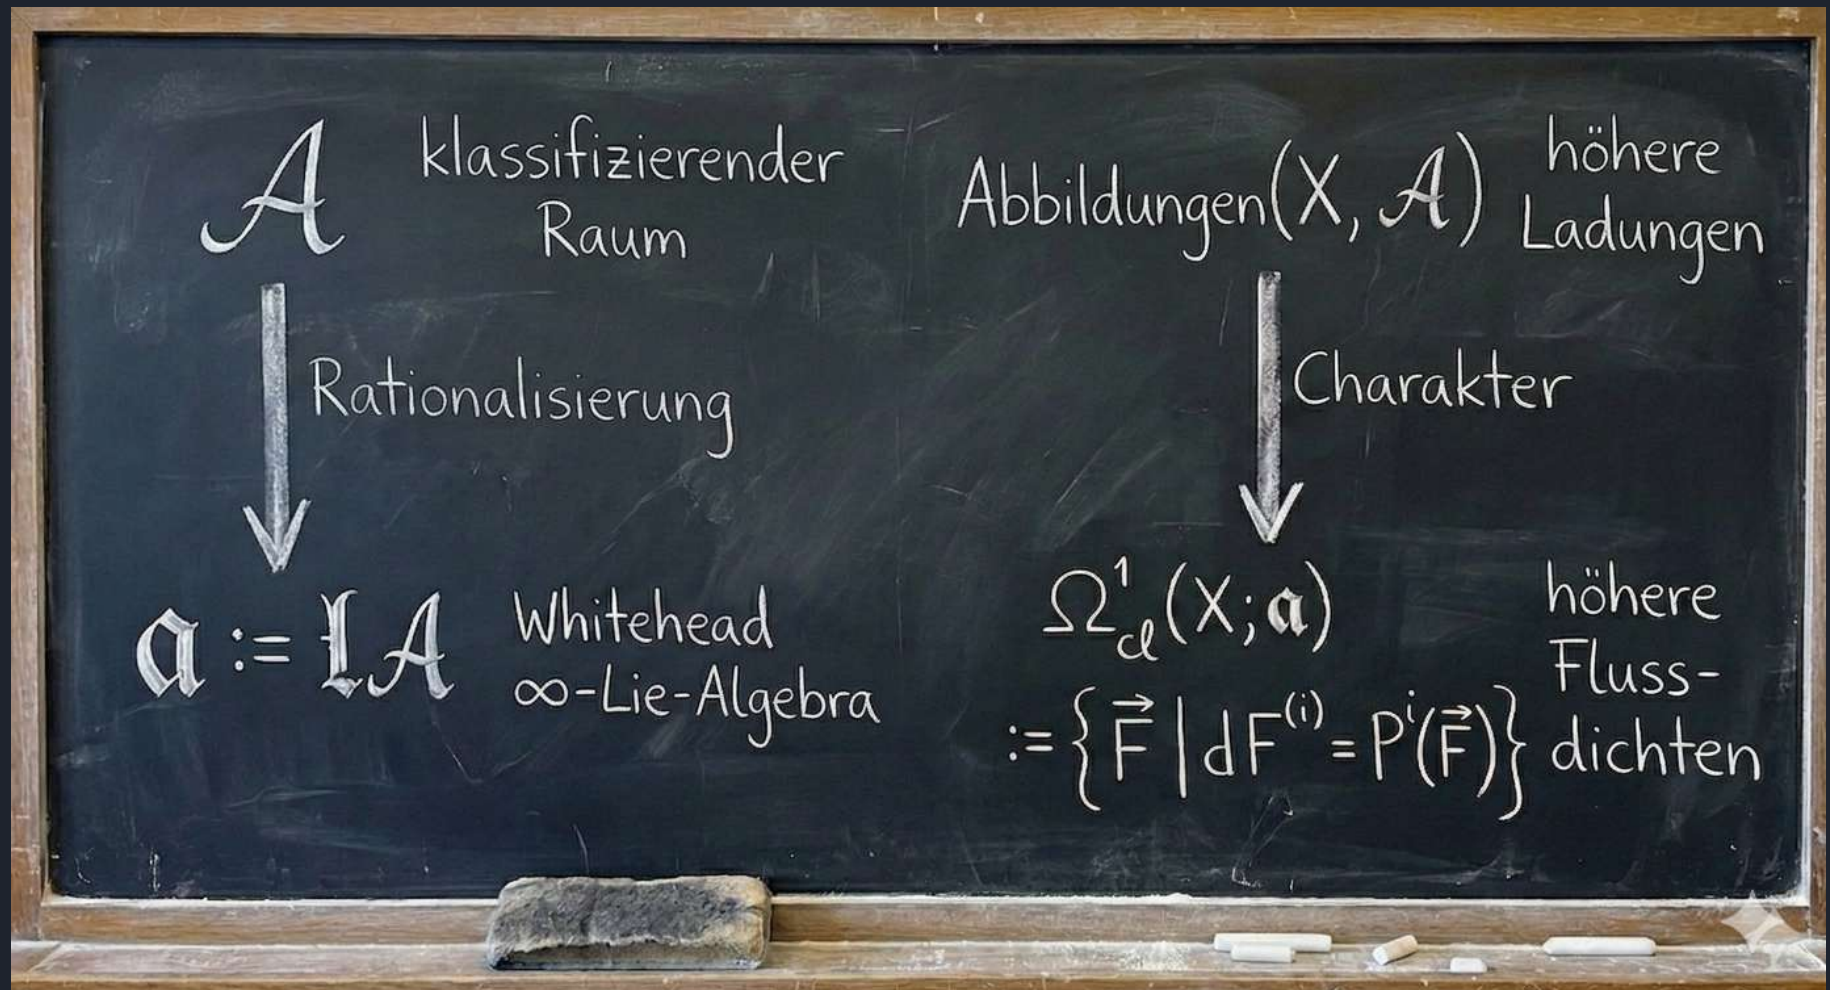 𝒜
klassifizierender
Raum
Rationalisierung
𝔞 := 𝔩𝒜
Whitehead
∞-Lie-Algebra
Abbildungen(X, 𝒜)
höhere
Ladungen
Charakter
Ω¹_cl(X; 𝔞)
:= {F⃗ | dF⁽ⁱ⁾ = Pⁱ(F⃗)}
höhere
Fluss-
dichten